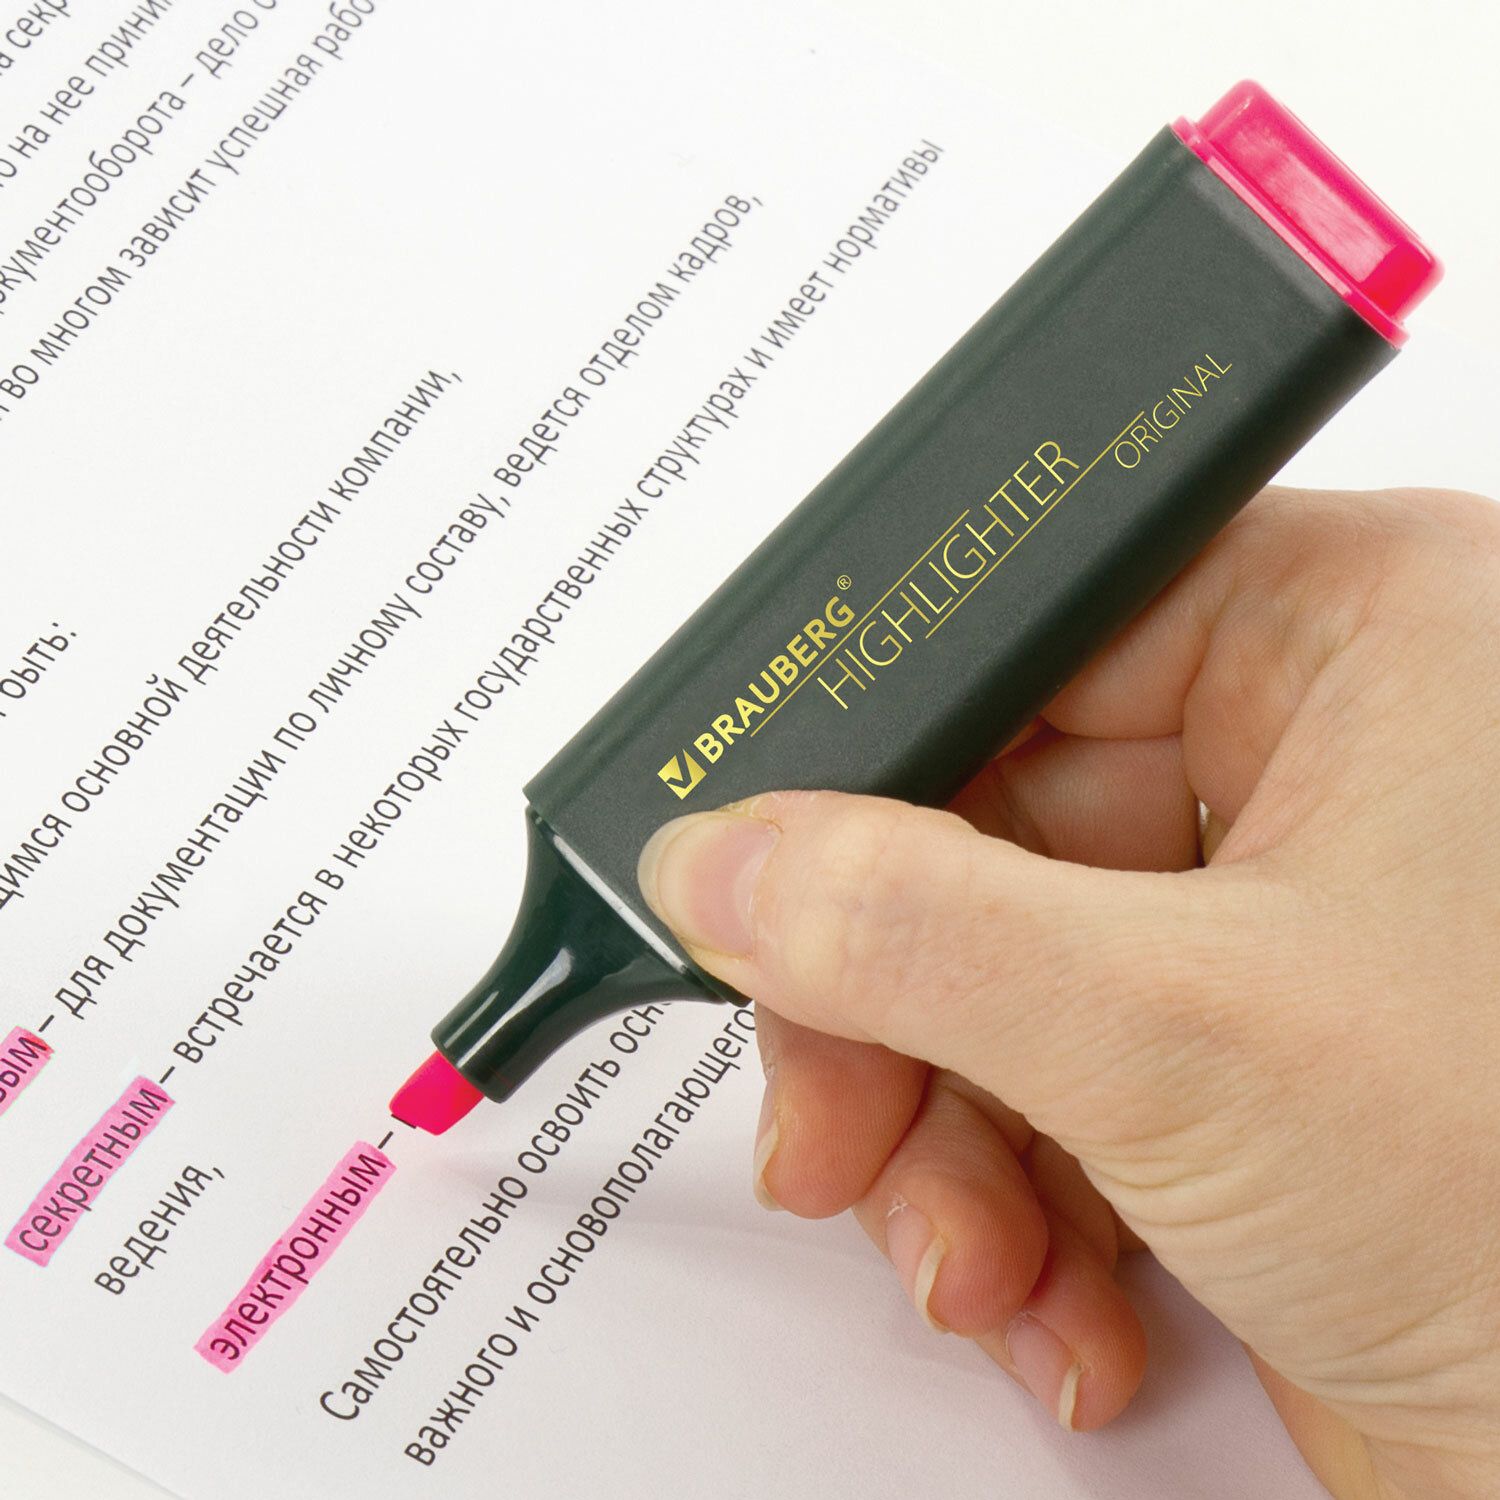 на нее
документооборота – дело
во многом зависит успешная
быть:
основной деятельности компании,
– для документации по личному составу, ведется отделом кадров,
секретным – встречается в некоторых государственных структурах и имеет нормативы
ведения,
электронным –
Самостоятельно освоить
важного и основополагающего
BRAUBERG®
HIGHLIGHTER
ORIGINAL